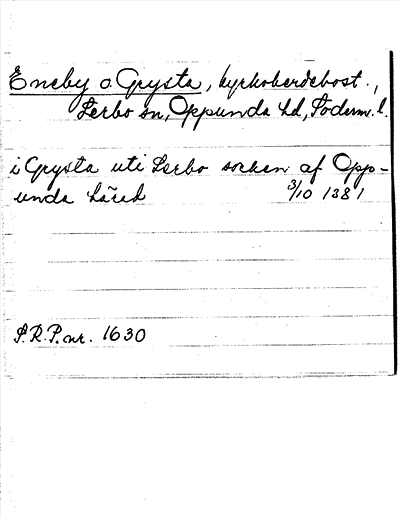 Eneby o. Grysta, kyrkoherdebost.,
Lerbo sn, Oppunda hd, Söderm. l.
i Grysta uti Lerbo socken af Opp-
unda häred 3/10 1381
S.R.P. nr. 1630